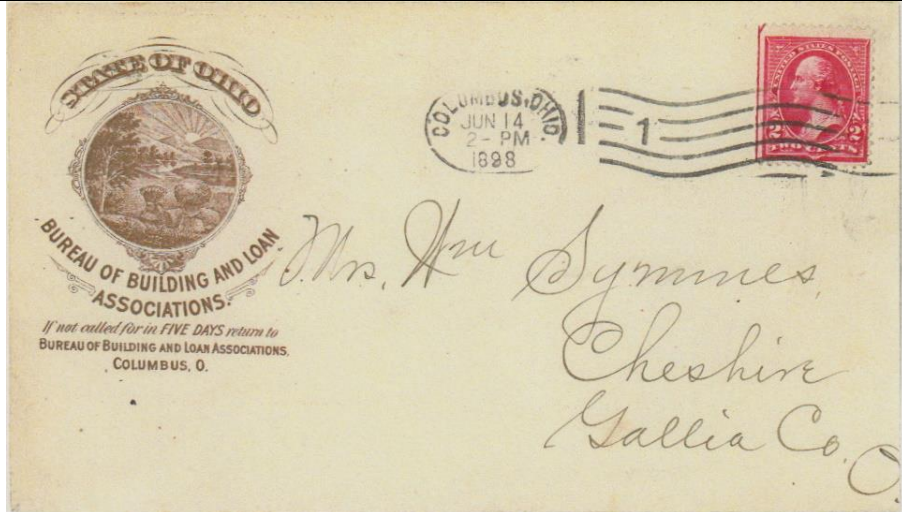 STATE OF OHIO
BUREAU OF BUILDING AND LOAN
ASSOCIATIONS.
If not called for in FIVE DAYS return to
BUREAU OF BUILDING AND LOAN ASSOCIATIONS,
COLUMBUS, O.
COLUMBUS, OHIO.
JUN 14
2 - PM
1898
1
UNITED STATES POSTAGE
2 2
TWO CENTS
Mrs, Wm Symmes,
Cheshire
Gallia Co.
O.